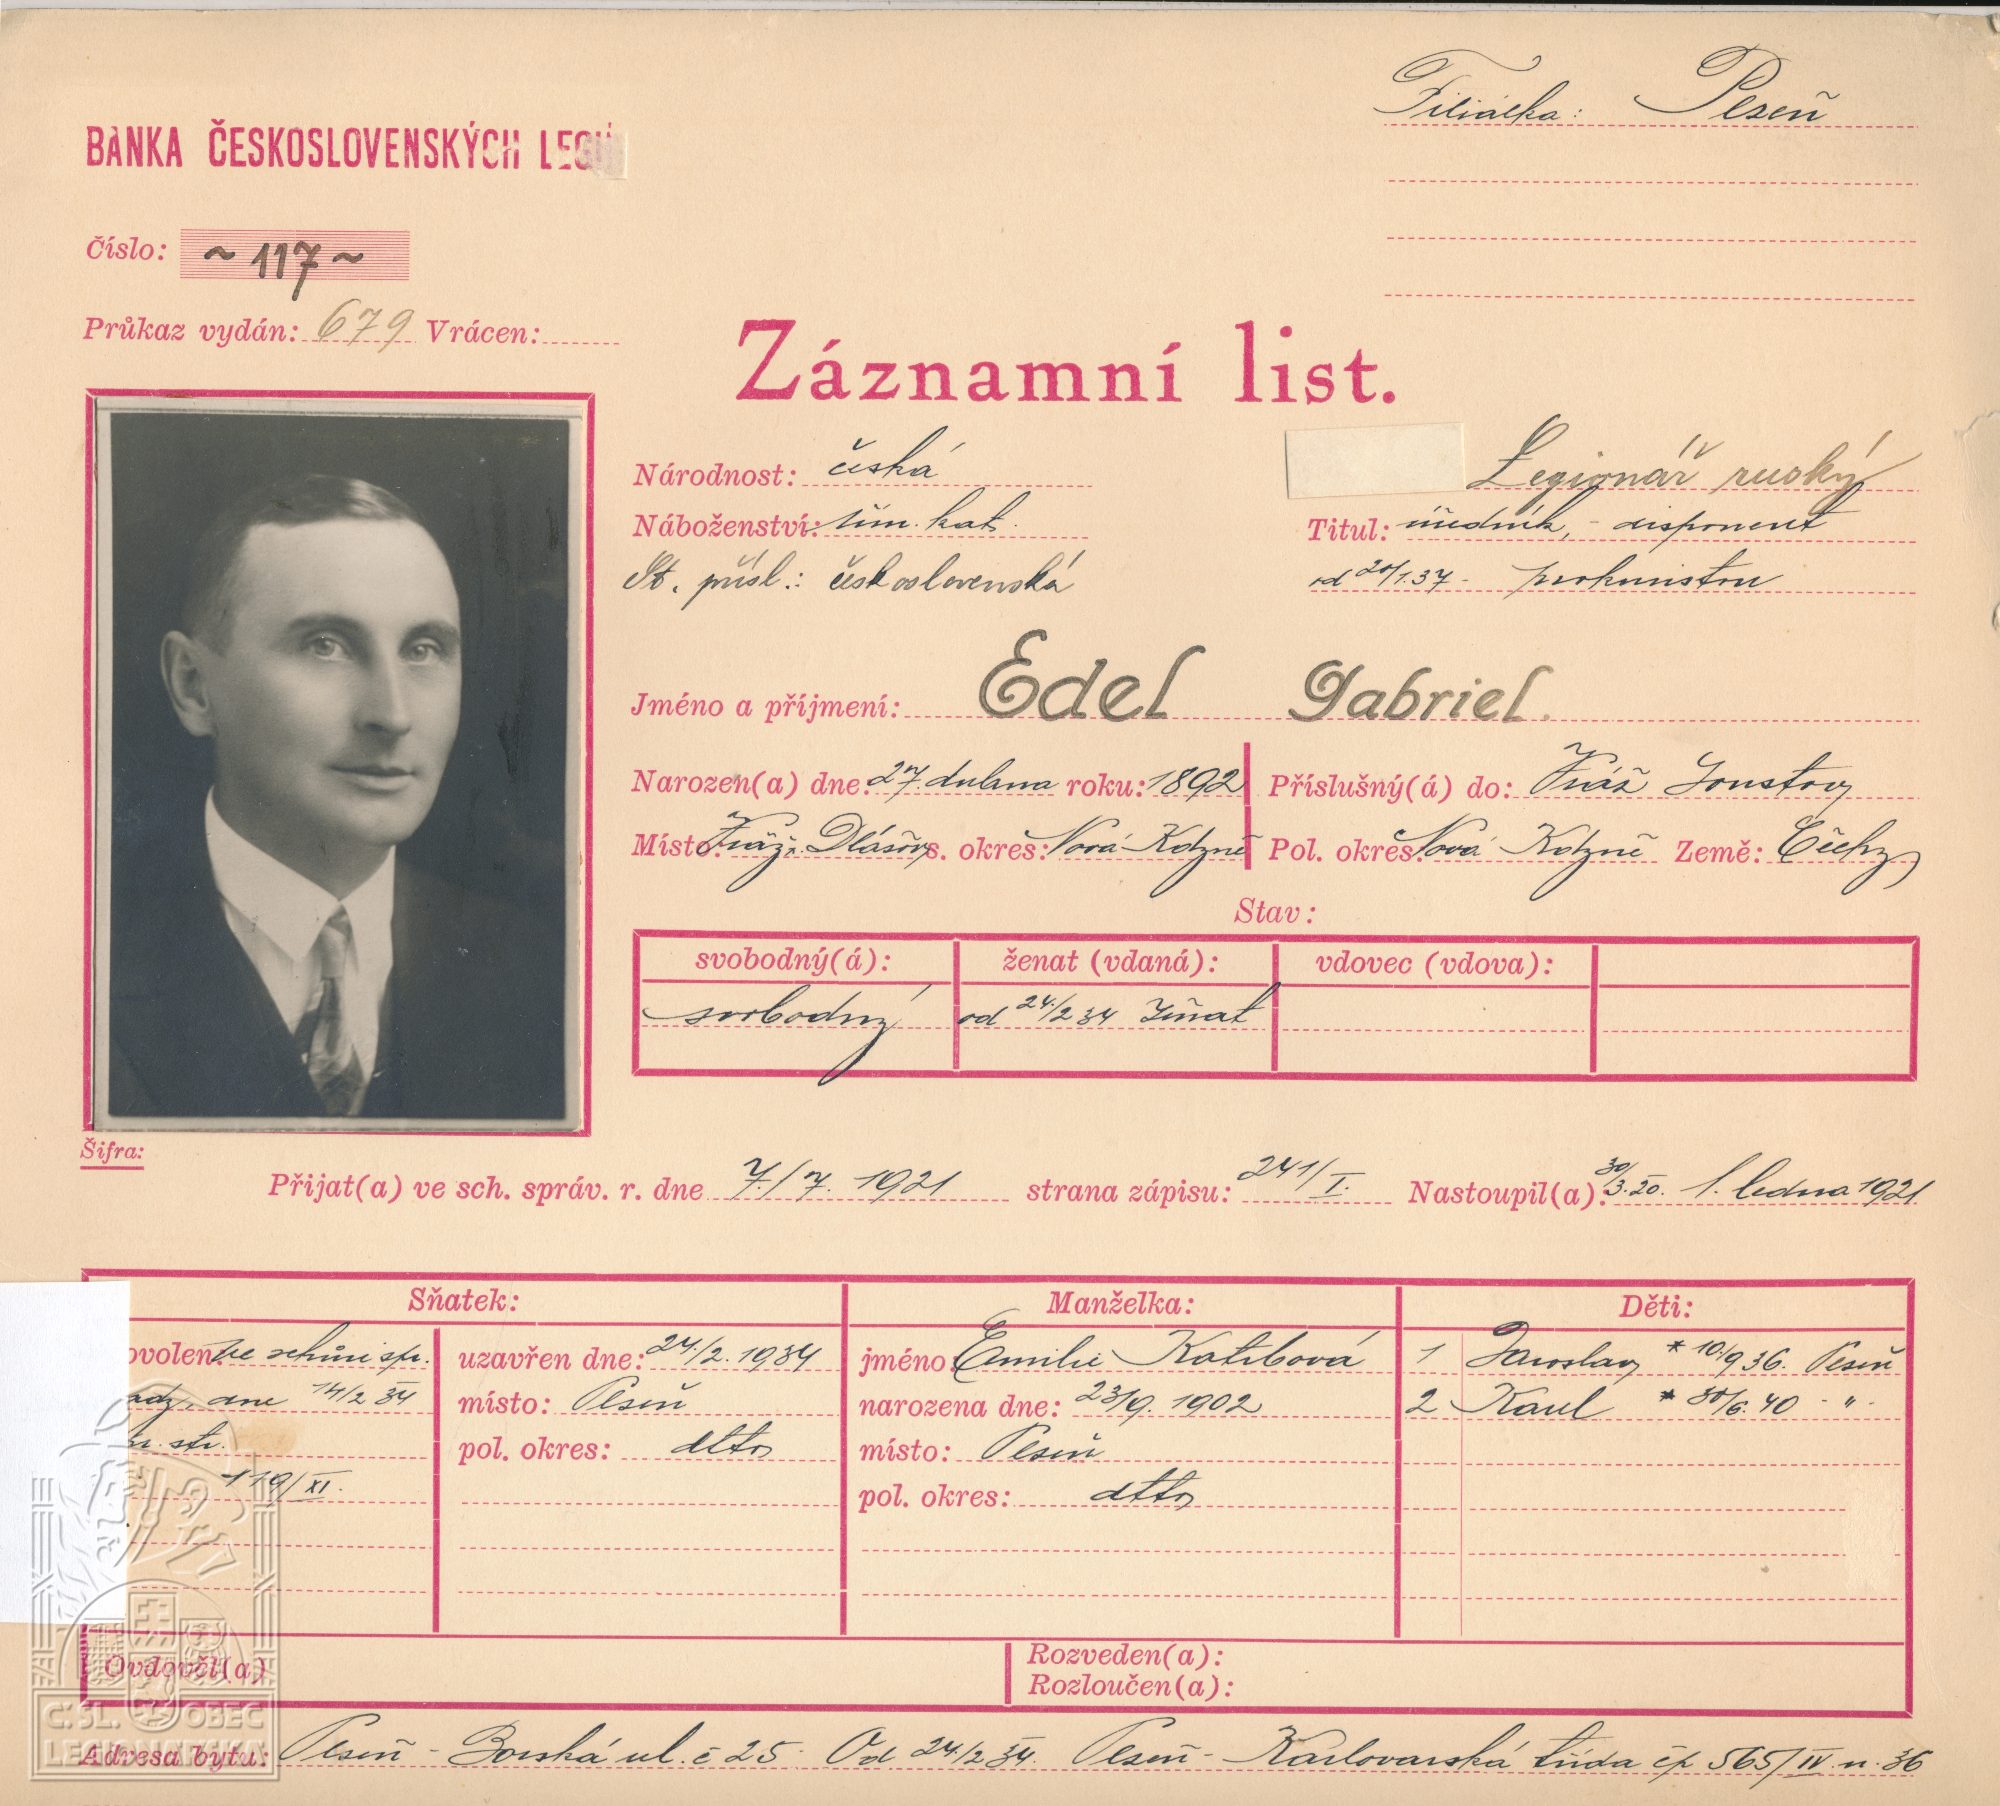 Filiálka: Plzeň
BANKA ČESKOSLOVENSKÝCH LEGIÍ
Číslo: ~ 117 ~
Průkaz vydán: 679 Vrácen:
Záznamní list.
Národnost: česká
Legionář ruský
Náboženství: řím. kat.
Titul: úředník, - disponent
St. přísl.: československá
od 20/1.37 - prokuristou
Jméno a příjmení: Edel Gabriel.
Narozen(a) dne: 27. dubna roku: 1892 Příslušný(á) do:
Místo: s. okres: Nová Kdyně Pol. okres: Nová Kdyně Země: Čechy
Stav:
svobodný(á): ženat (vdaná): vdovec (vdova):
svobodný od 24./2 34 ženat
Šifra:
Přijat(a) ve sch. správ. r. dne 7./7. 1921 strana zápisu: 241/I. Nastoupil(a): 30/3.20. 1. ledna 1921
Sňatek: Manželka: Děti:
ovolen ve schůzi spr.
rady, dne 14/2 34
str.
119/XI.
uzavřen dne: 24./2. 1934
místo: Plzeň
pol. okres: dtto
jméno: Emilie
narozena dne: 23/9. 1902
místo: Plzeň
pol. okres: dtto
1 Jaroslav * 10./9 36. Plzeň
2 Karel * 30/6. 40 - " -
Ovdověl(a)
Rozveden(a):
Rozloučen(a):
Adresa bytu: Plzeň - Borská ul. č 25. Od 24./2 34. Plzeň - Karlovarská třída čp 565/IV n. 36
Č. SL. OBEC
LEGIONÁŘSKÁ